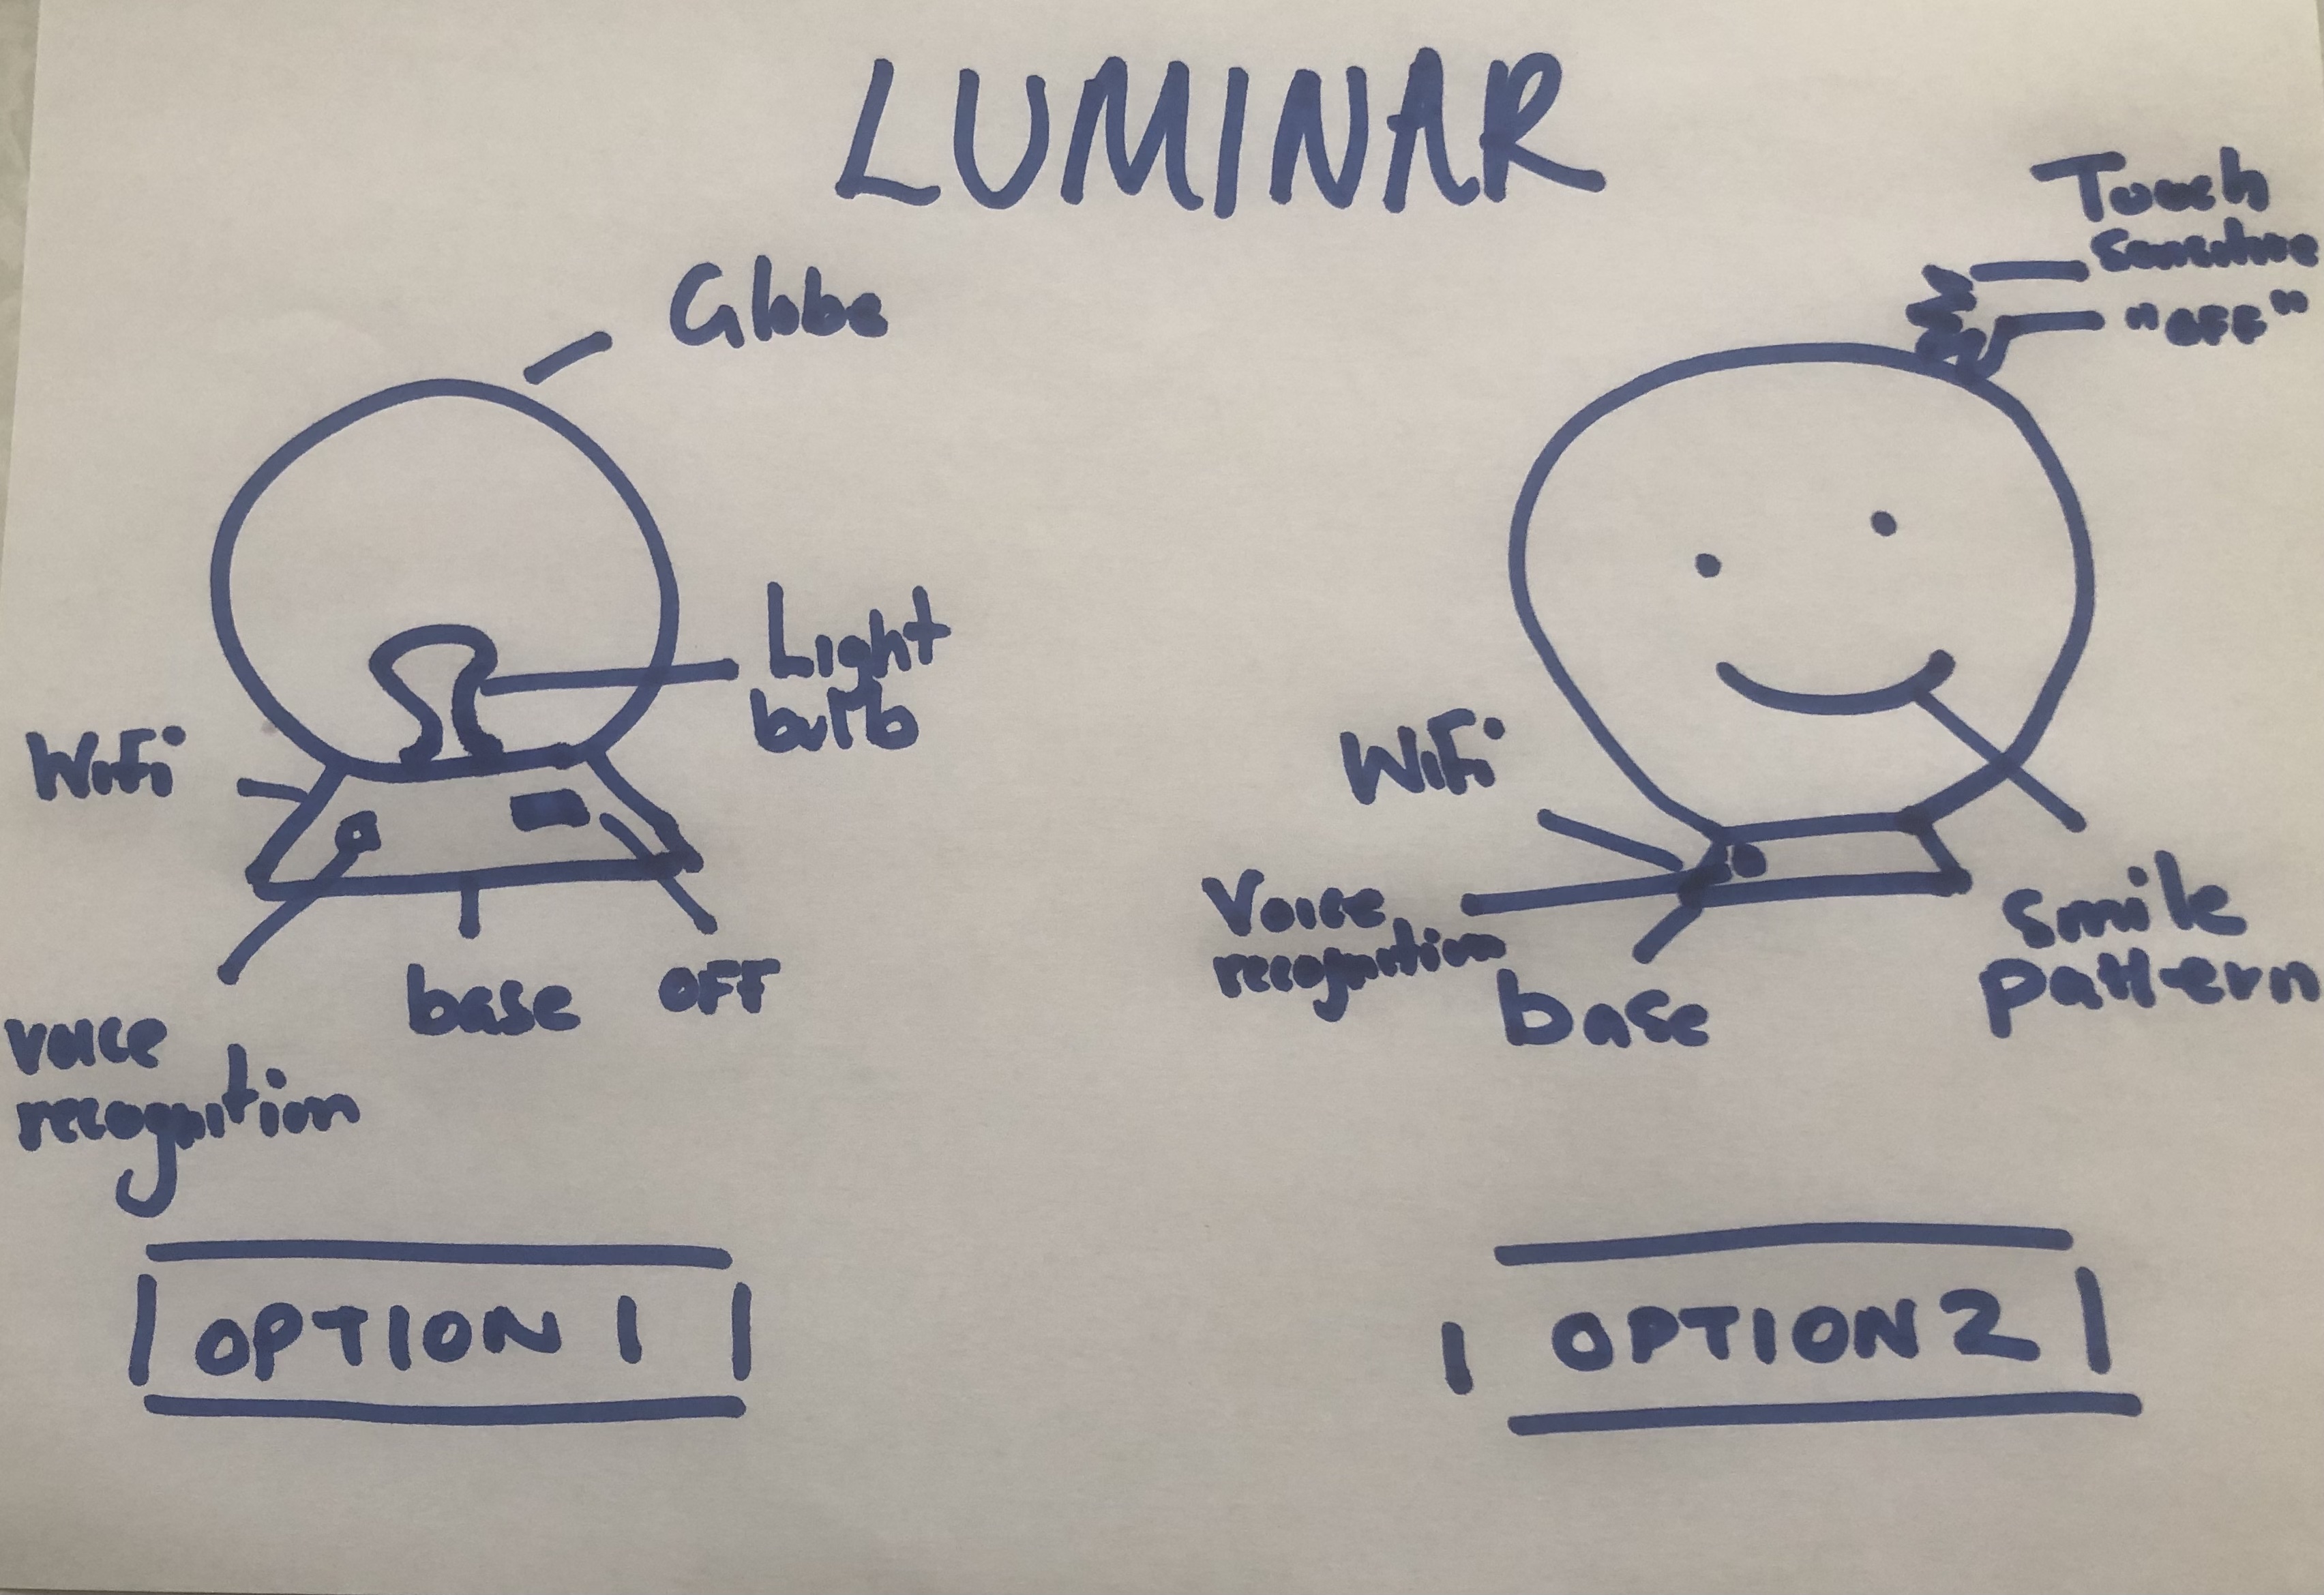 LUMINAR
Globe
Light
bulb
Wifi
voice
recognition
base
OFF
OPTION 1
Touch
Sensitive
"OFF"
Wifi
Voice
recognition
base
Smile
pattern
OPTION 2